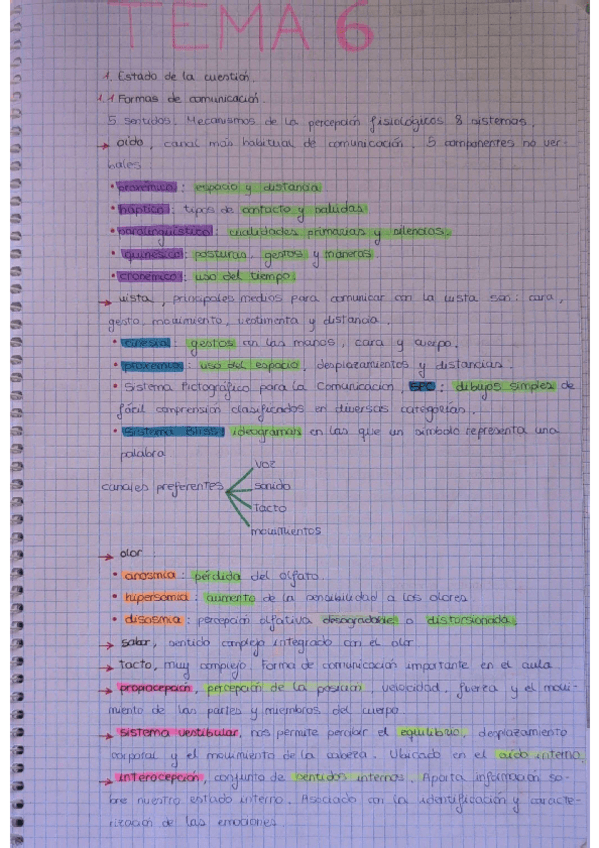 TEMA 6
1. Estado de la cuestión.
1.1 Formas de comunicación.
5 sentidos. Mecanismos de la percepción fisiológicos 8 sistemas.
→ oído, canal más habitual de comunicación. 5 componentes no ver-
bales
• proxémico: espacio y distancia
• háptico: tipos de contacto y saludas
• paralingüístico: cualidades primarias y silencios.
• quinésico: posturas, gestos y maneras
• cronémico: uso del tiempo.
→ vista, principales medios para comunicar con la vista son: cara,
gesto, movimiento, vestimenta y distancia.
• cinesia: gestos en las manos, cara y cuerpo.
• proxemia: uso del espacio, desplazamientos y distancias.
• Sistema Pictográfico para la Comunicación, SPC: dibujos simples de
fácil comprensión clasificados en diversas categorías.
• Sistema Bliss: ideogramas en las que un símbolo representa una
palabra
canales preferentes
voz
sonido
Tacto
movimientos
→ olor:
• anosmia: pérdida del olfato.
• hipersomia: aumento de la sensibilidad a los olores
• disosmia: percepción olfativa desagradable o distorsionada.
→ sabor, sentido complejo integrado con el olor
→ tacto, muy complejo. Forma de comunicación importante en el aula.
→ propiocepción, percepción de la posición, velocidad, fuerza y el movi-
miento de las partes y miembros del cuerpo
→ sistema vestibular, nos permite percibir el equilibrio, desplazamiento
corporal y el movimiento de la cabeza. Ubicado en el oído interno.
→ interocepción, conjunto de sentidos internos. Aporta información so-
bre nuestro estado interno. Asociado con la identificación y caracte-
rización de las emociones